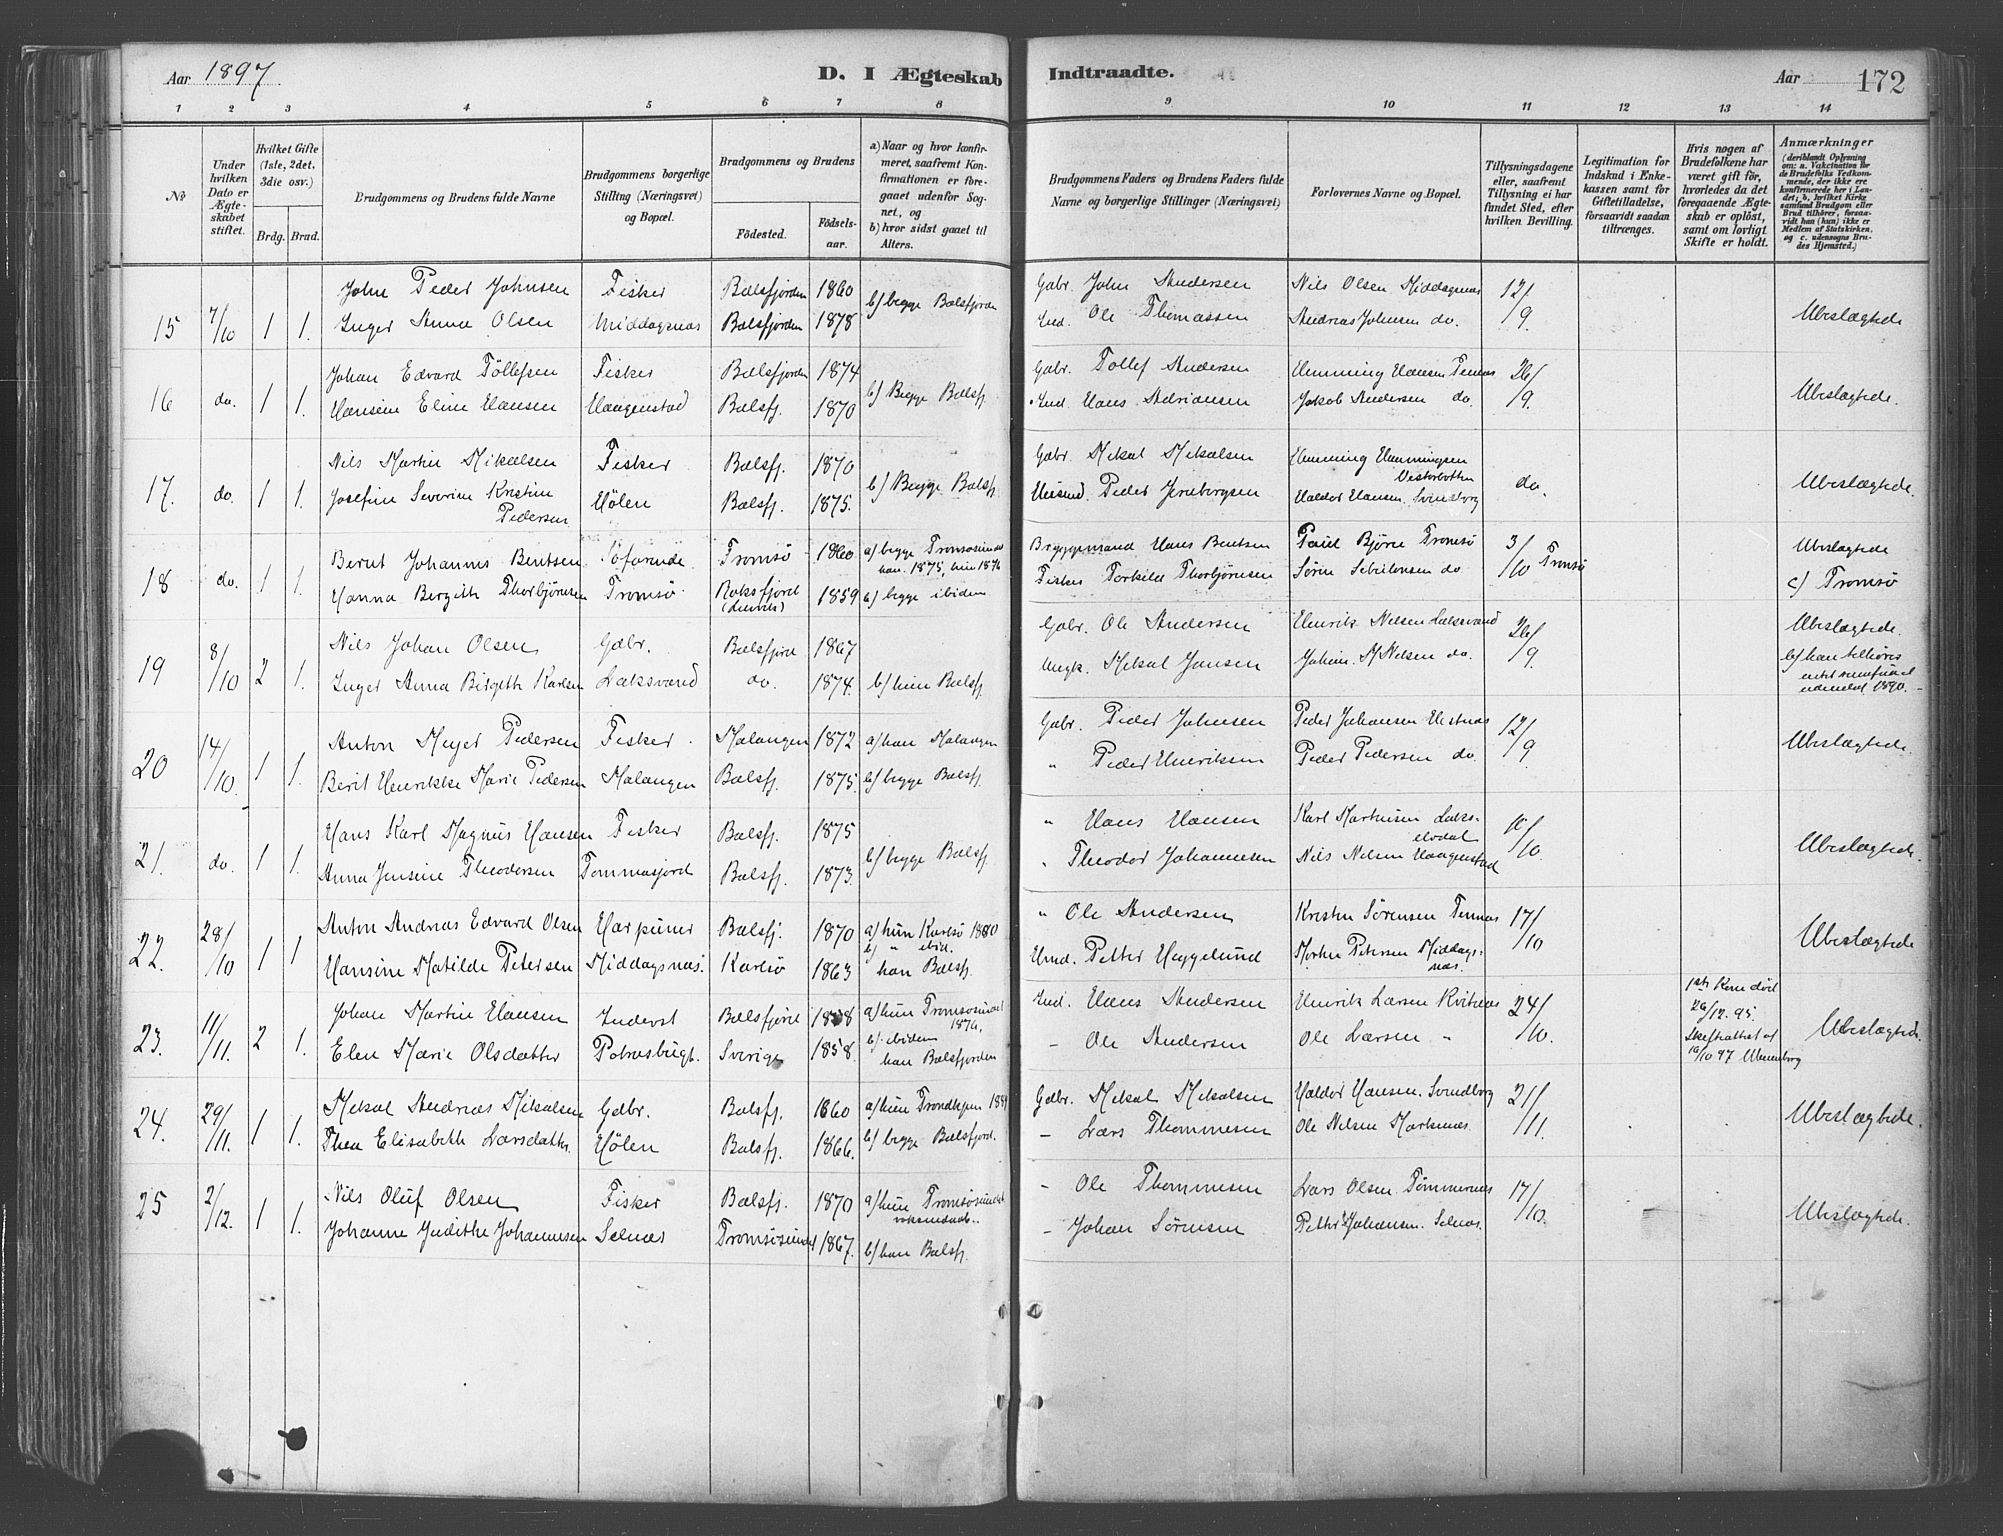 Aar 1897.
D. I Ægteskab Indtraadte.
Aar
172
1 2 3 4 5 6 7 8 9 10 11 12 13 14
No
Under hvilken Dato er Ægteskabet stiftet.
Hvilket Gifte (1ste, 2det, 3die osv.)
Brdg. Brud.
Brudgommens og Brudens fulde Navne
Brudgommens borgerlige Stilling (Næringsvei) og Bopæl.
Brudgommens og Brudens
Fødested. Fødselsaar.
a) Naar og hvor konfirmeret, saafremt Konfirmationen er foregaaet udenfor Sognet, og
b) hvor sidst gaaet til Alters.
Brudgommens Faders og Brudens Faders fulde Navne og borgerlige Stillinger (Næringsvei)
Forlovernes Navne og Bopæl.
Tillysningsdagene eller, saafremt Tillysning ei har fundet Sted, efter hvilken Bevilling.
Legitimation for Indskud i Enkekassen samt for Giftetilladelse, forsaavidt saadan tiltrænges.
Hvis nogen af Brudefolkene har været gift før, hvorledes da det foregaaende Ægteskab er opløst, samt om lovligt Skifte er holdt.
Anmærkninger
(deriblandt Oplysning om: a. Vakcination for de Brudefolks Vedkommende, der ikke ere konfirmerede her i Landet; b. hvilket Kirkesamfund Brudgom eller Brud tilhører, forsaavidt han (hun) ikke er Medlem af Statskirken, og c. udensogns Brudes Hjemsted.)
John Peder Johnsen Fisker Balsfjorden 1860 b/ begge Balsfjorden Gdbr. John Andersen Nils Olsen Middagsnes 12/
15 7/10 1 1. Inger Anna Olsen Middagsnæs Balsfjorden 1878 Ind. Ole Thomassen Andreas Johnsen do. /9. Ubeslægtede
Johan Edvard Tøllefsen Fisker Balsfjorden 1874 Gdbr. Tollef Andersen Hemming Hansen Tennæs 26/
16 do. 1 1. Hansine Eline Hansen Haagenstad Balsfj. 1870 b/ Begge Balsfj. Ind. Hans Adriansen Jakob Andersen do. /9. Ubeslægtede.
Nils Martin Mikalsen Fisker Balsfj. 1870 Gdbr. Mikal Mikalsen Hemming Hemmingsen Vesterbotten
17. do. 1 1. Josefine Severine Kristine Pedersen Hølen Balsfj. 1875. b/ Begge Balsfj. Peder Jernborgsen Haldor Hansen Svensborg do. Ubeslægtede.
Bernt Johannes Bentsen Søfarende Tromsø 1860 a/ begge Tromsøsundet han 1875, hun 1876 Bryggemand Hans Bentsen Paul Bjørn Tromsø 3/ Ubeslægtede
18 do. 1 1. Hanna Bergith Thorbjørnsen Tromsø. 1859 b/ begge ibiden Fisker Torkild Thorbjørnsen Søren do /10 Tromsø c) Tromsø
Nils Johan Olsen Gdbr. Balsfjord 1867 Gdbr. Ole Andersen Henrik Nilsen Laksvand 26/ Ubeslægtede.
19 8/10 2 1. Inger Anna Birgith Karlsen Laksvand do. 1874. b/ hun Balsfj. Ungk. Mikal Jansen Johan M Nilsen do. /9. b/ han tilhører udmeldt 1890.
Anton Meyer Pedersen Fisker. Malangen 1872 a/ han Malangen Gdbr. Peder Johnsen Peder Johansen Hestnæs 12/
20 14/10. 1 1. Berit Henrikke Marie Pedersen Malangen Balsfj. 1875. b/ begge Balsfj. " Peder Henriksen Peder Pedersen do. /9. Ubeslægtede.
Hans Karl Magnus Hansen Fisker Balsfj. 1875 " Hans Hansen Karl Martinsen Lakselvdal 10/
21. do. 1 1. Anna Jensine Theodorsen Tommasjord Balsfj. 1873. b/ begge Balsfj. " Theodor Johannesen Nils Nilsen Haagenstad /10. Ubeslægtede.
Anton Andreas Edvard Olsen Harpuner Balsfj. 1870 a/ hun Karlsø 1880 b) " ibid. " Ole Andersen Kristen Sørensen Tennæs 17/
22. 28/10 1 1 Hansine Matilde Petersen Middagsnæs. Karlsø 1863 han Balsfj. Petter Heggelund Morten Petersen Middagsnæs. /10 Ubeslægtede
Johan Martin Hansen Inderst Balsfjord 1858 a/ hun Tromsøsundet 1876, Ind. Hans Andersen Henrik Larsen Kvitnæs 24/ 1ste Kone død 26/12.95.
23. 11/11. 2 1. Elen Marie Olsdatter Sverige 1858. b/ ibiden han Balsfjorden - Ole Andersen Ole Larsen " /10. Skifteattest af 16/10 97 Ubeslægtede.
Mikal Andreas Mikalsen Gdbr. Balsfj. 1860 a/ hun Trondhjem Gdbr. Mikal Mikalsen Haldor Hansen. Svendborg 21/
24. 29/11. 1 1. Thea Elisabeth Larsdatter Hølen Balsfj. 1866. b/ begge Balsfjord. - Lars Thommesen Ole Nilsen Markenæs. /11. Ubeslægtede.
Nils Oluf Olsen Fisker Balsfj. 1870 a/ hun Tromsøsundet - Ole Thommesen Lars Olsen. Tømmernæs 17/
25 2/12. 1 1. Johanne Judithe Johannesen Selnæs Tromsøsundet 1867. b/ han Balsfj. - Johan Sørensen Petter Johansen. Selnæs. /10. Ubeslægtede.